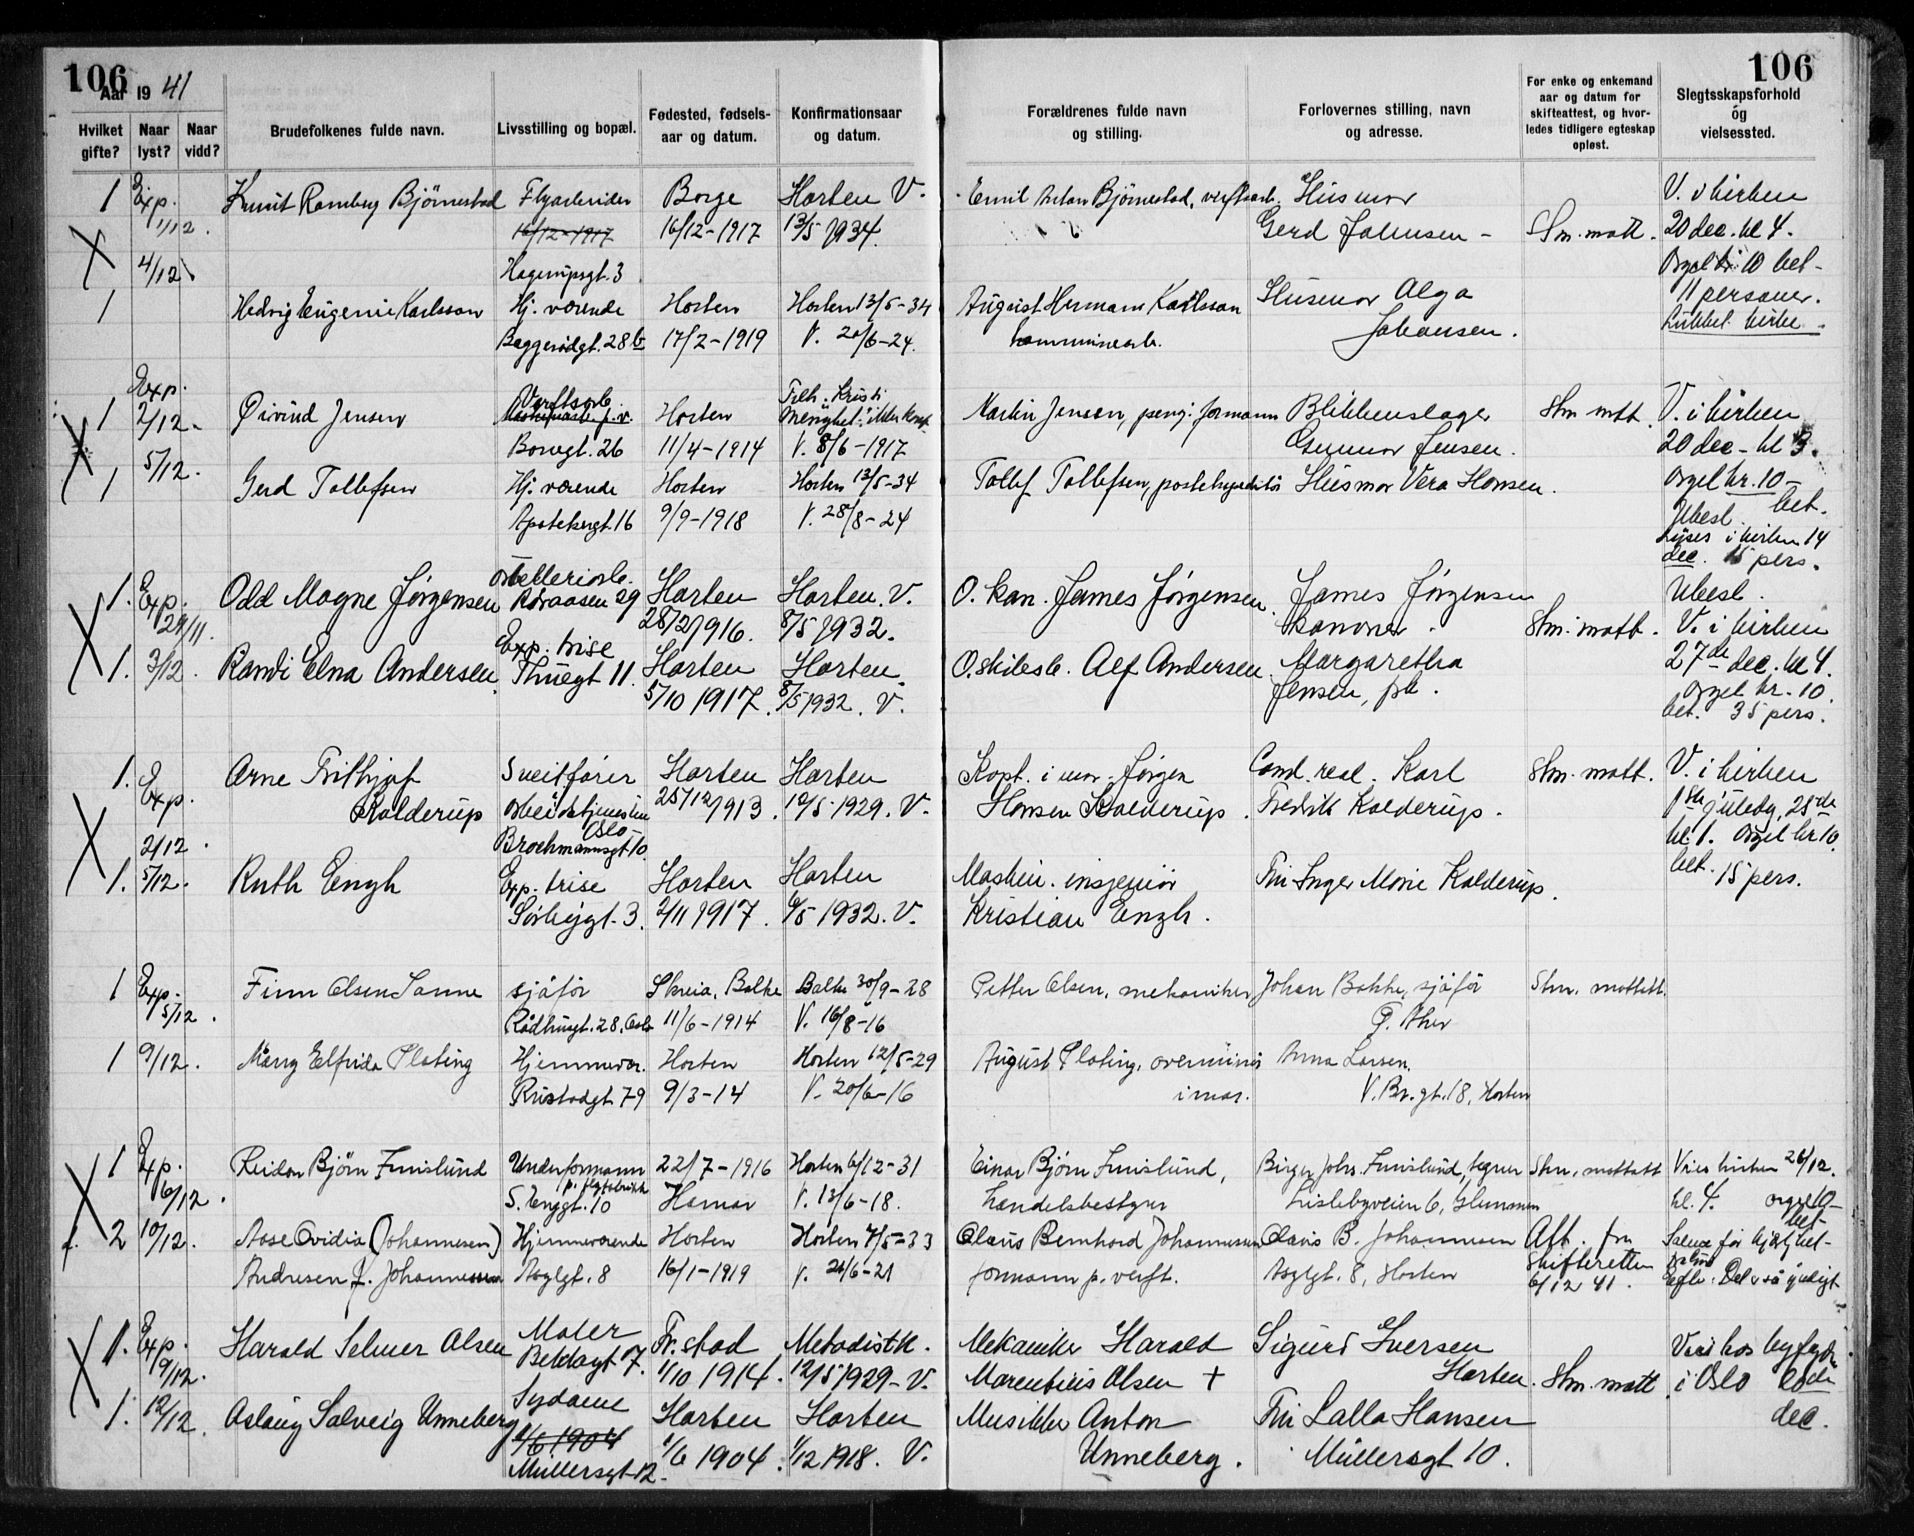 106
106
Aar 1941
Hvilket gifte?
Naar lyst?
Naar vidd?
Brudefolkenes fulde navn.
Livsstilling og bopæl.
Fødested, fødsels-
aar og datum.
Konfirmationsaar
og datum.
Forældrenes fulde navn
og stilling.
Forlovernes stilling, navn
og adresse.
For enke og enkemand
aar og datum for
skifteattest, og hvor-
ledes tidligere egteskap
opløst.
Slegtsskapsforhold
óg
vielsessted.
1 Exp. Knut Ramberg Bjørnestad Borge Horten V. Emil Anton Bjørnestad, verftsarb. Husmor V. i kirken
1/12. 16/12-1917 16/12-1917 13/5 1934. Gerd Johnsen - Stm. matt. 20 dec. kl 4.
X 4/12 Hagerupsgt. 3 Orgel kr 10 bet-
1 Hedvig Eugenie Karlsson Hj. værende Horten Horten 13/5-34 August Hermann Karlsson Husmor Alga 11 personer.
28b 17/2-1919 V. 20/6-24. kommunearb. Johansen.
Exp.
Verftsarb.
X 1 2/12. Øivind Jensen Horten Martin Jensen, penj. formann Blikkenslager Stm. matt. V. i kirken
Borregt. 26 11/4-1914 V. 8/6-1917 Gunnar Jensen. 20 dec - kl 3.
1 5/12. Gerd Tollefsen Hj. værende Horten Horten 13/5-34 Tollef Tollefsen, postekspeditør Husmor Vera Hansen. Orgel kr. 10-
Apotekergt. 16 9/9-1918 V. 28/8-24 bet.
Ubesl.
Lyses i kirken 14
dec. 15 pers.
X 1. Exp. Odd Magne Jørgensen Horten Horten. V. O. kan. James Jørgensen. James Jørgensen Ubesl.
29/11. 28/2 1916. 8/5 1932. kanoner. Stm. matt. V. i kirken
1. 3/12. Randi Elna Andersen. Exp. trise Horten Horten. O. skibsb. Alf Andersen Margaretha 27de dec. kl 4.
Thuegt 11. 5/10 1917. 8/5 1932. V. Jensen, pk. Orgel kr. 10
bet. 35 pers.
1. Exp. Arne Frithjof Horten Horten Kapt. i mar. Jørgen Cand. real. Karl Stm. matt. V. i kirken
X Kolderup arbeidstjenesten 25/12 1913. 10/5 1929. V. Hansen Kolderup. Fredrik Kolderup. 1ste juledag, 25de
2/12. Oslo- kl. 1. Orgel kr 10.
Brochmannsgt 10. bet. 15 pers.
1. 5/12. Ruth Engh Exp. trise Horten Horten Maskin. insjeniør Fru Inger Marie Kolderup.
3. 2/11 1917. 6/5 1932. V. Kristian Engh.
1 Exp. Finn Olsen Sanne sjåfør Skreia, Balke Balke 30/9-28 Petter Olsen, mekaniker Johan Bakke, sjåfør Stm. mottatt.
5/12. Rådhusgt. 28, Oslo 11/6-1914 V. 16/8-16
1 9/12. Merry Elfrida Plating Hjemmevær. Horten Horten 12/5-29 August Plating, overminør Anna Larsen,
79 9/3-14 V. 20/6-16 i mar. V. Br. gt. 18, Horten
X 1 Exp. Reidar Bjørn Furuslund Underformann 22/7-1916 Horten 6/12-31 Einar Bjørn Furuslund, Birger Johs. Furuslund, tegner Stm. mottatt Vies i kirken 26/12.
6/12. p. flyfabrikk
S. Enggt. 10 Hamar V. 13/6-18. handelsbestyrer Lislebyveien 6, Glemmen kl. 4. orgel 10-
bet-
2 10/12. Aase Ovidia (Johannesen) Hjemmeværende Horten Horten 7/5-33 Claus Bernhard Johannessen Claus B. Johannesen Att. fra
Andresen f. Johannessen 8 16/1-1919 V. 24/6-21 formann p. verft. 8, Horten skifteretten
6/12 41.
X 1. Exp. Harald Selmer Olsen Maler Fr. stad Metodistk. Mekaniker Harald Sigurd Iversen Vies hos byfogden
9/12. 7. 1/10 1914. 12/5 1929-V. Marentius Olsen + Horten. Stm. matt. i Oslo
1. 12/12. Aslaug Solveig Unneberg Sydame Horten Horten Musikker Anton Fru Lalla Hansen dec.
1/6 1904 1/6 1904. 1/12 1918. V. Unneberg. Müllersgt 10.
Müllersgt 12.